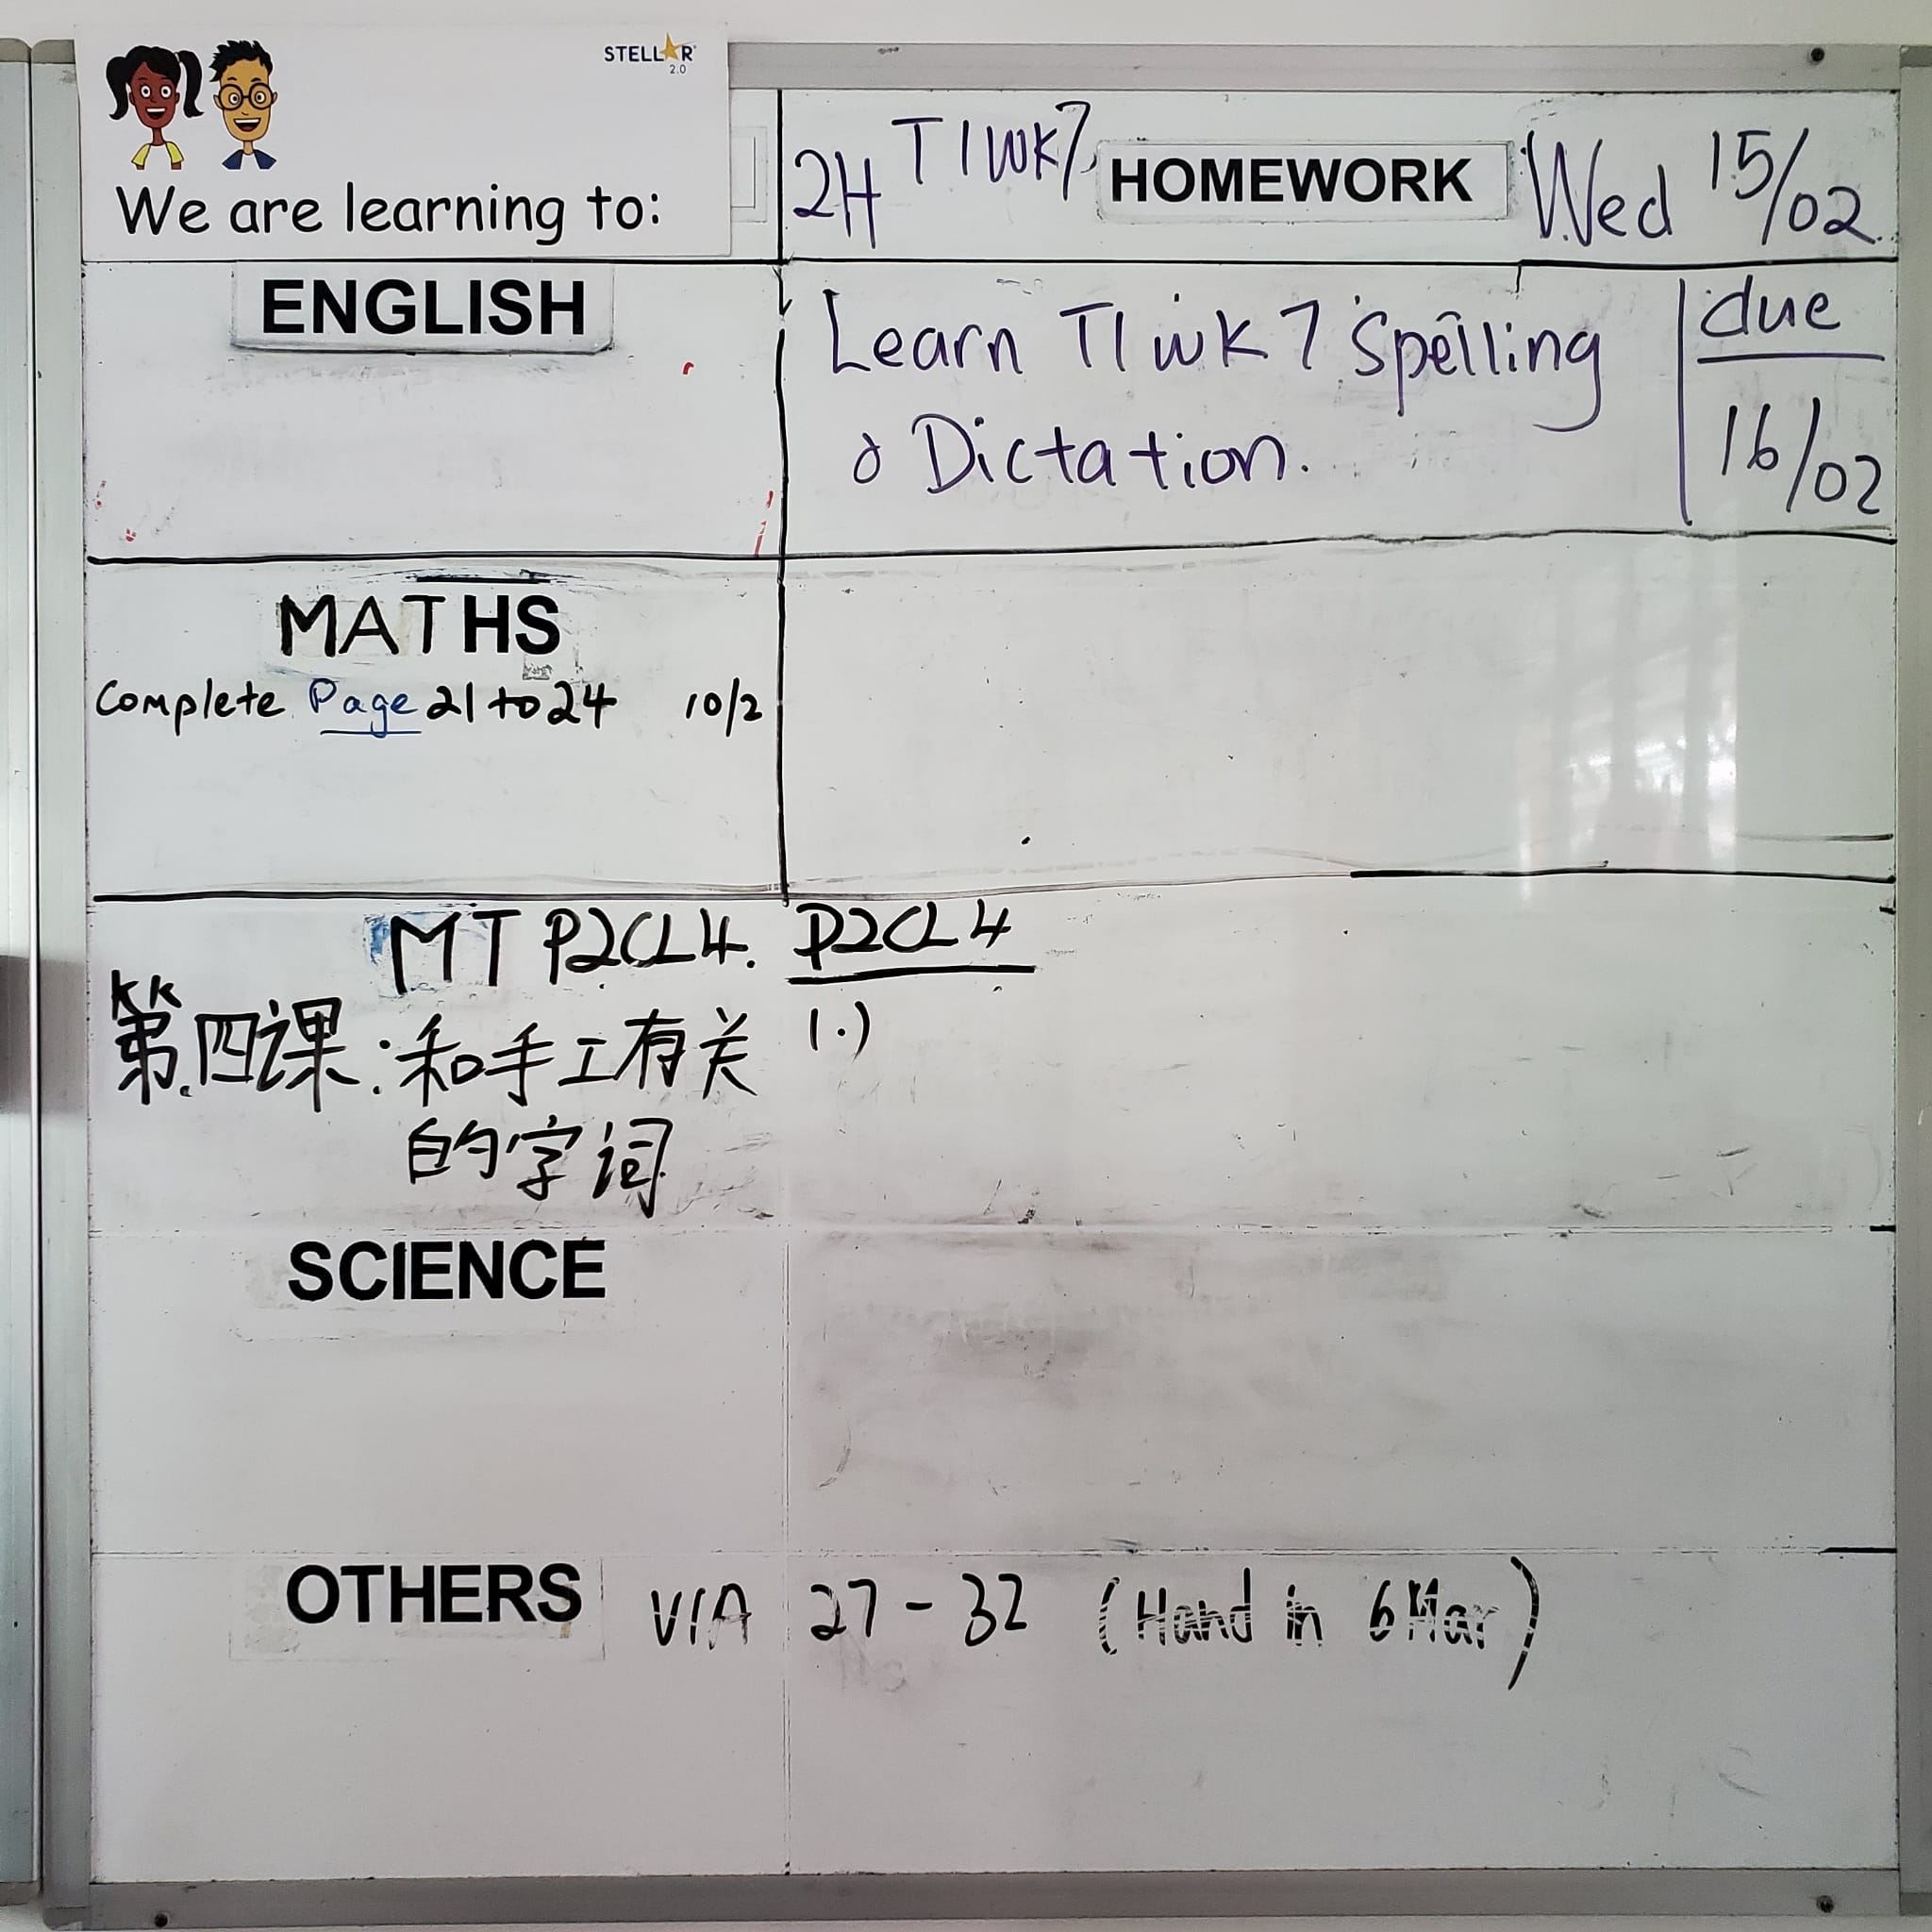 STELLAR 2.0
We are learning to:
2H T1 WK7 HOMEWORK Wed 15/02
ENGLISH
Learn T1 WK 7 Spelling
& Dictation.
due
16/02
MATHS
Complete Page 21 to 24 10/2
MT P2CL4.
第四课:和手工有关
的字词
P2CL4
1.)
SCIENCE
OTHERS VIA 27-32 (Hand in 6 Mar)